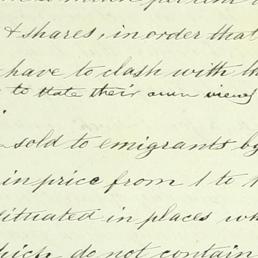 & shares, in order that
have to clash with
to state their own views
sold to emigrants by
in price from 1 to
situated in places
which do not contain